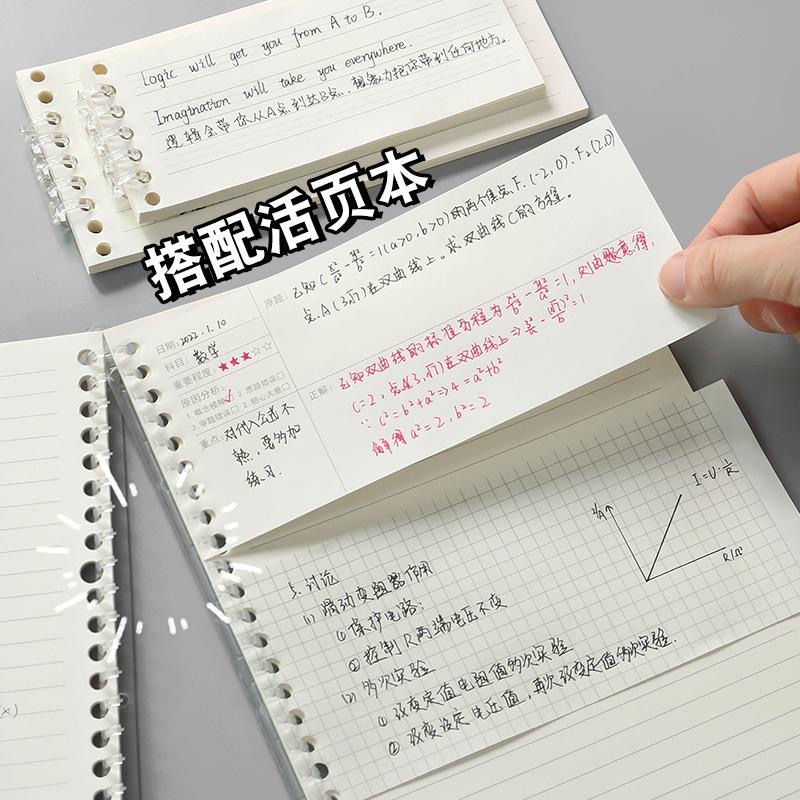 Logic will get you from A to B.
Imagination will take you everywhere.
逻辑会带你从A点到达B点，想象力把你带到任何地方。
搭配活页本
原题：已知C x²/a²-y²/b²=1(a>0,b>0)的两个焦点F₁(-2,0)、F₂(2,0)
点A(3,√7)在双曲线上。求双曲线C的方程。
日期：2022.1.10
科目：数学
重要程度：★★★☆☆
原因分析：
1.概念模糊☑ 2.思路错误□
3.审题错误□ 2.粗心大意□
重点：对代入公式不
熟，要多加
练习.
正解：已知双曲线的标准方程为x²/a²-y²/b²=1，则由题意得，
c=2，点A(3,√7)在双曲线上⇒
∵c²=b²+a²⇒4=a²+b²
解得a²=2，b²=2
I=U·1/R
I/A
R/Ω
5.讨论
(1)滑动变阻器作用
①保护电路；
②控制R两端电压不变
(2)多次实验
①改变定值电阻值多次实验
②改变设定电压值，再次改变定值多次实验.